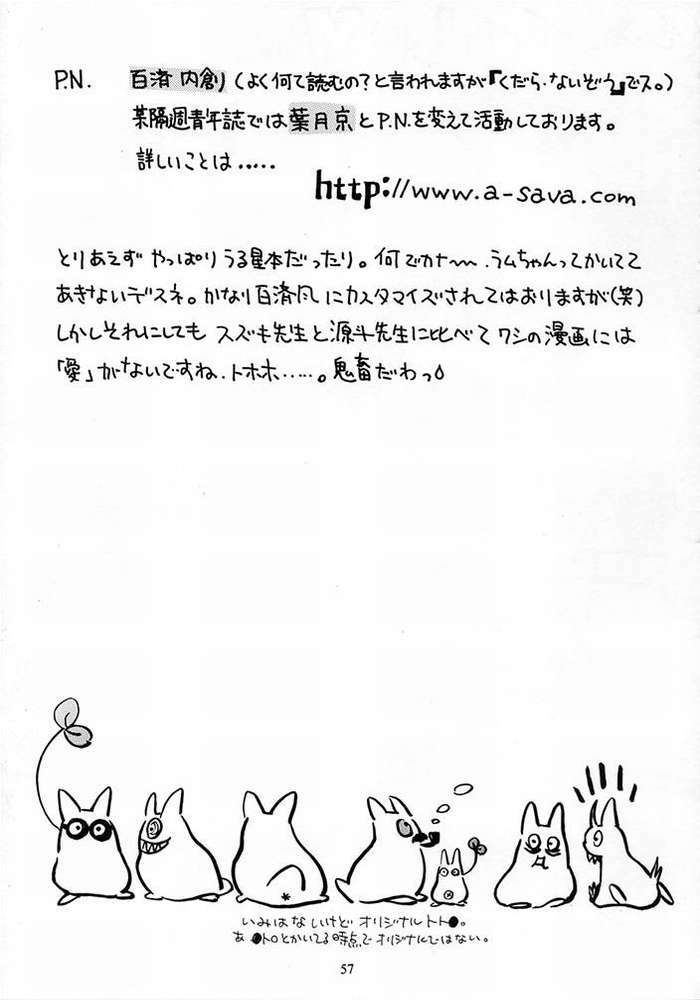 P.N. 百済 内創 (よく何て読むの?と言われますが『くだら・ないぞう』でス。)
某隔週青年誌では葉月京とP.N.を変えて活動しております。
詳しいことは.....
http://www.a-sava.com
とりあえず やっぱりうる星本だったり。何でカナ〜〜.ラムちゃんってかいてて
あきないデスネ。かなり百済風にカスタマイズされてはおりますが(笑)
しかしそれにしても スズキ先生と源斗先生に比べてワシの漫画には
「愛」がないですね.トホホ.....。鬼畜だわっ
いみはないけど オリジナルトト●。
あ ●トロとかいてる時点でオリジナルではない。
57